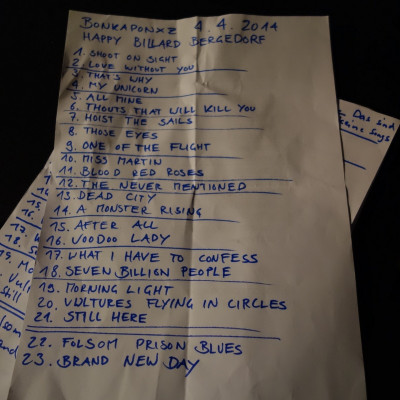 BONKAPONXZ 4.4.2014
HAPPY BILLARD BERGEDORF
1. SHOOT ON SIGHT
2. LOVE WITHOUT YOU
3. THAT'S WHY
4. MY UNICORN
5. ALL MINE
6. THOUTS THAT WILL KILL YOU
7. HOIST THE SAILS
8. THOSE EYES
9. ONE OF THE FLIGHT
10. MISS MARTIN
11. BLOOD RED ROSES
12. THE NEVER MENTIONED
13. DEAD CITY
14. A MONSTER RISING
15. AFTER ALL
16. VOODOO LADY
17. WHAT I HAVE TO CONFESS
18. SEVEN BILLION PEOPLE
19. MORNING LIGHT
20. VULTURES FLYING IN CIRCLES
21. STILL HERE
22. FOLSOM PRISON BLUES
23. BRAND NEW DAY
Das sind
16.
17.
18.
19. Mo
Still